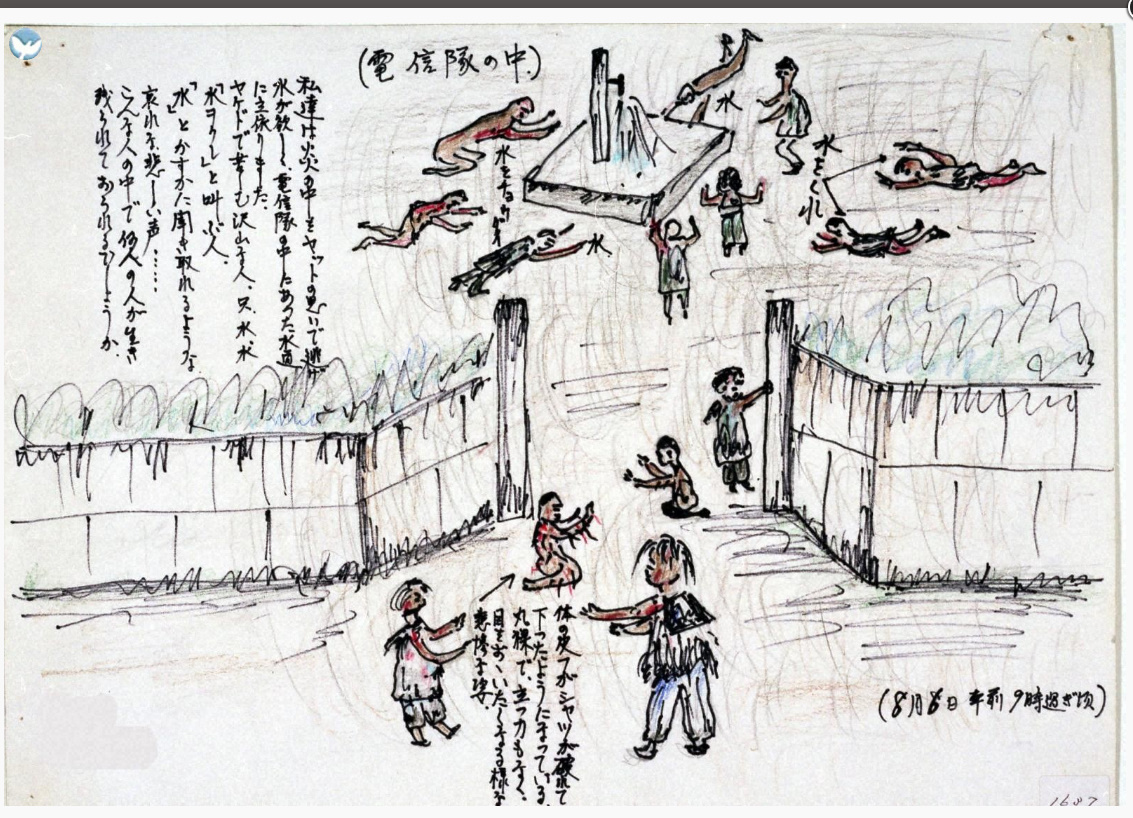 (電信隊の中)
私達は炎の中をヤットの思いで逃げ
水が欲しく、電信隊の中にあった水道
に立依りました。
ヤケドで苦しむ沢山な人、只、水、水
「水ヲクレ」と叫ぶ人。
「水」とかすかに聞き取れるような
哀れな悲しい声……
こんな人の中で何人の人が生き
残られておられるでしょうか。
水
水をくれ
水をちょうだい
水
体の皮フがシャツが破れて
下ったようになっている
丸裸で、立つ力もなく、
目をおゝいたくなる様な
悲惨な姿
(8月6日午前9時過ぎ頃)